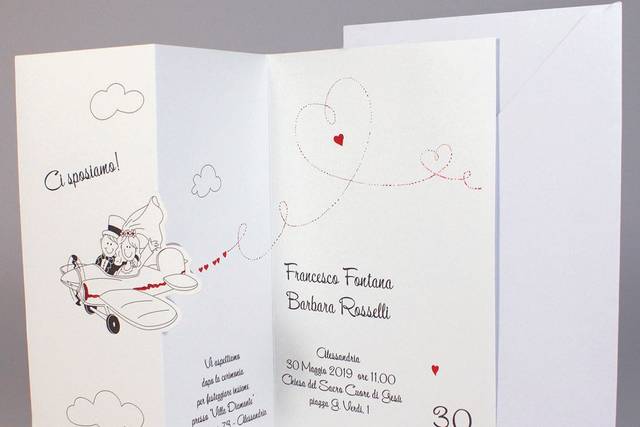 Ci sposiamo!
Vi aspettiamo
dopo la cerimonia
per festeggiare insieme
presso "Villa Diamante"
79 - Alessandria
Francesco Fontana
Barbara Rosselli
Alessandria
30 Maggio 2019 ore 11.00
Chiesa del Sacro Cuore di Gesù
piazza G. Verdi, 1
30